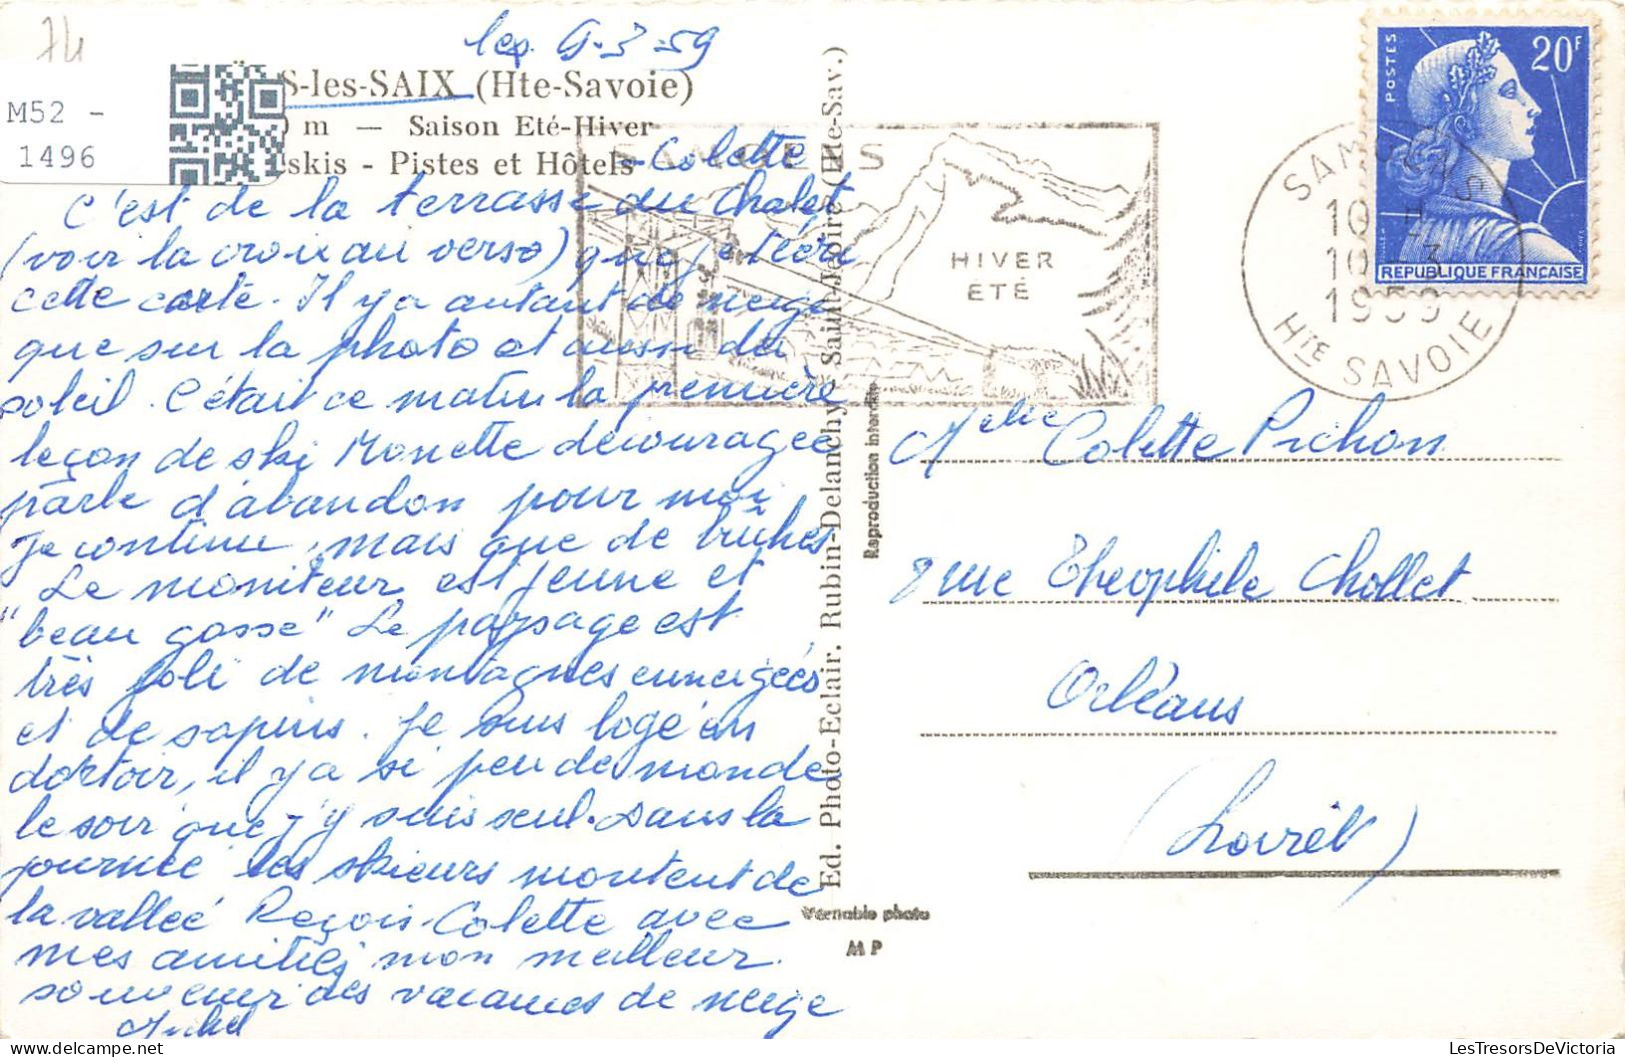 74
les 9-3-59
M52 -
1496
S-les-SAIX (Hte-Savoie)
0 m — Saison Eté-Hiver
skis - Pistes et Hôtels
Colette
C'est de la terrasse du Chalet
(voir la croix au verso) que je t'écri
cette carte. Il y a autant de neige
que sur la photo et aussi du
soleil. C'était ce matin la première
leçon de ski Monette découragée
parle d'abandon pour moi
je continue, mais que de bûches
Le moniteur est jeune et
"beau gosse" Le paysage est
très joli de montagnes enneigées
et de sapins. Je suis logé en
dortoir, il y a si peu de monde
le soir que j'y suis seul. Dans la
journée les skieurs montent de
la vallée Reçois Colette avec
mes amitiés mon meilleur
souvenir des vacances de neige
Michel
Ed. Photo-Eclair. Rubin-Delanchy - Saint-Jeoire (Hte-Sav.)
Reproduction interdite
Véritable photo
MP
SAMOENS
HIVER
ETÉ
SAMOENS
10 H
10 -3
1959
HTE SAVOIE
POSTES
20F
REPUBLIQUE FRANÇAISE
Melle Colette Pichon
8 rue Theophile Chollet
Orléans
(Loiret)
LesTresorsDeVictoria
www.delcampe.net